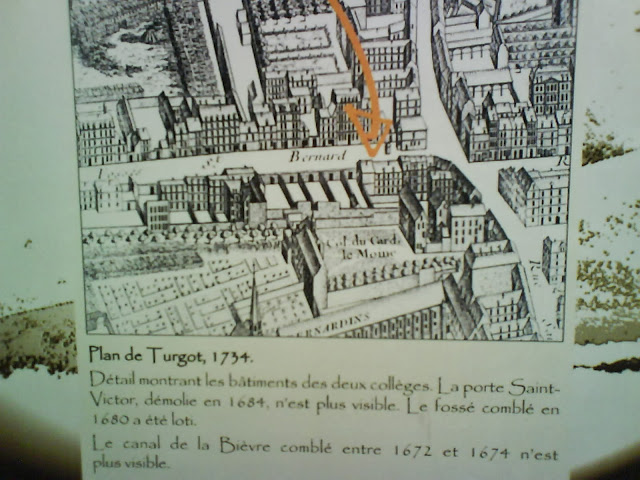 St. Bernard
R
Col. du Card.
le Moine
RNARDINS
Plan de Turgot, 1734.
Détail montrant les bâtiments des deux collèges. La porte Saint-
Victor, démolie en 1684, n'est plus visible. Le fossé comblé en
1680 a été loti.
Le canal de la Bièvre comblé entre 1672 et 1674 n'est
plus visible.